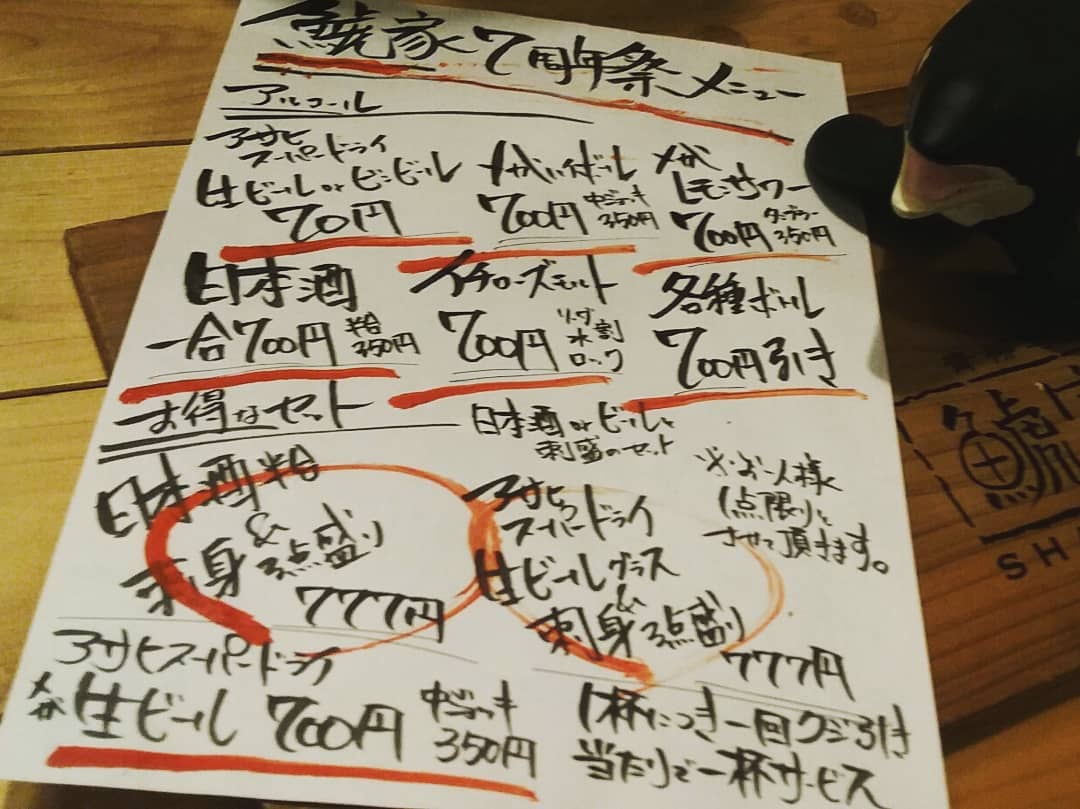 鯱家7周年祭メニュー
アルコール
アサヒ
スーパードライ
生ビール or ビンビール
70円
メガハイボール
700円 中ジョッキ 350円
メガ
レモンサワー
700円 タンブラー 350円
日本酒
一合700円 半合 350円
イチローズモルト
700円 ソーダ 水割 ロック
各種ボトル
700円引き
お得なセット
日本酒 or ビールと
刺盛のセット
日本酒半合
&
刺身3点盛り
777円
アサヒ
スーパードライ
生ビールグラス
&
刺身3点盛り
777円
※お一人様
1点限りと
させて頂きます。
アサヒスーパードライ
メガ 生ビール 700円 中ジョッキ 350円
1杯につき一回クジ引き
当たりで一杯サービス
SH